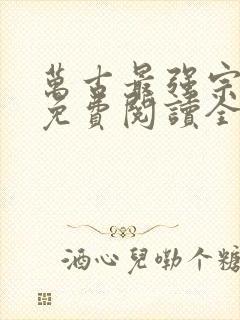 萬古最強宗
免費閱讀全
酒心兒嘞个糖